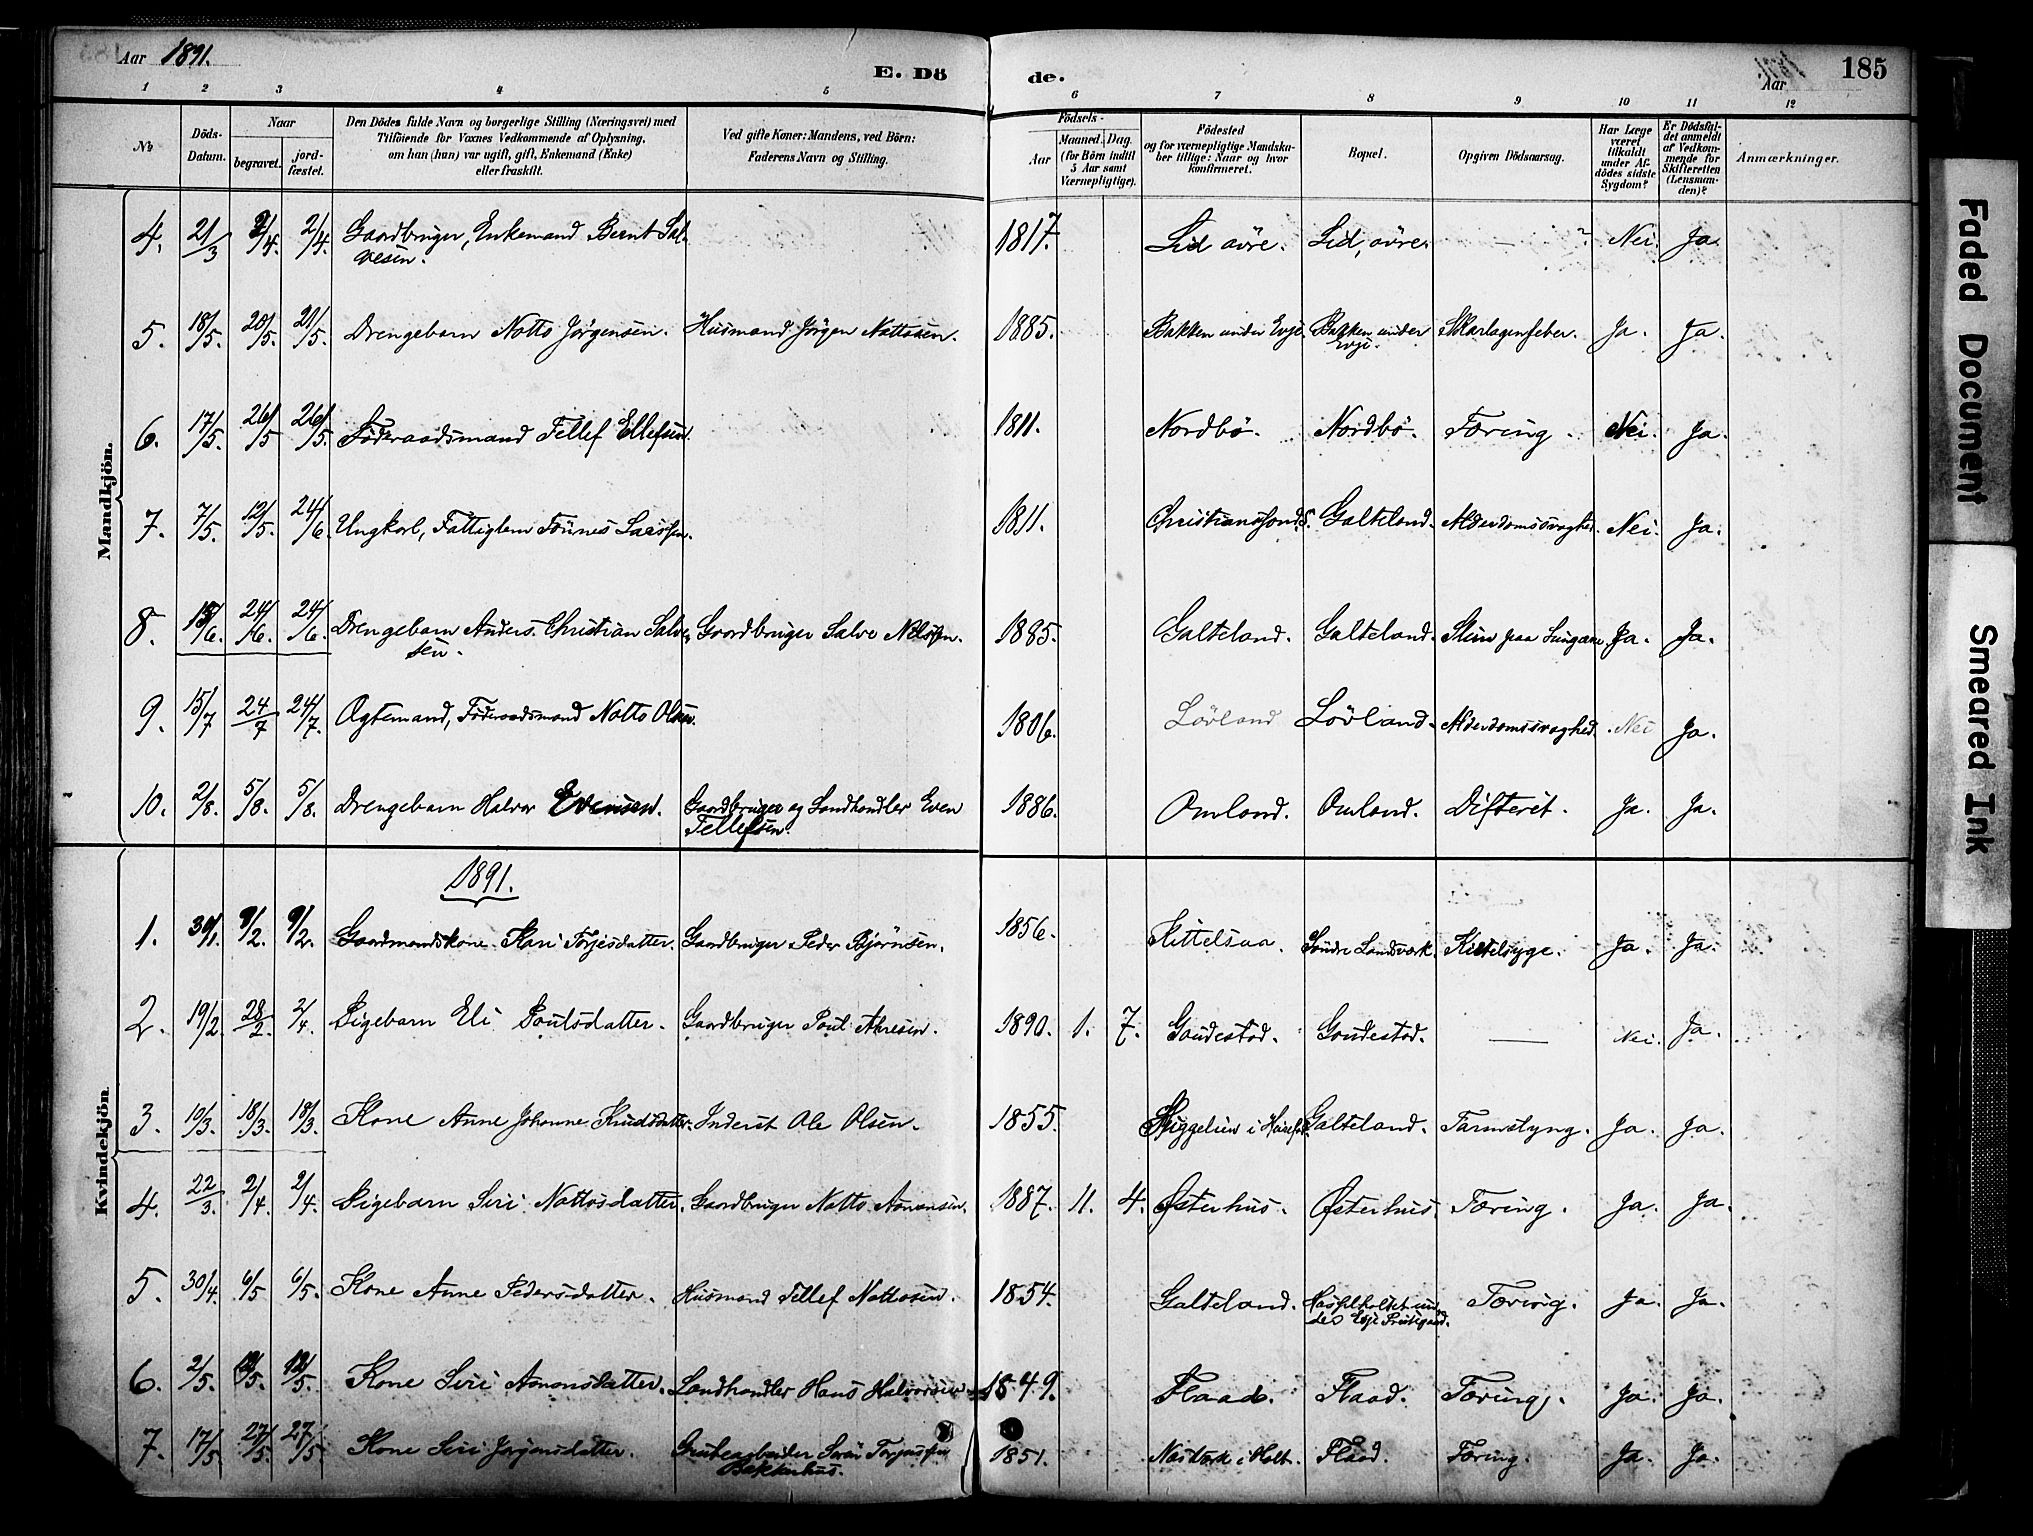 Aar 1891. E. Dö de. Aar 185
1 2 3 4 5 6 7 8 9 10 11 12
No
Döds-Datum.
Naar
begravet. jord-fæstet.
Den Dödes fulde Navn og borgerlige Stilling (Næringsvei) med
Tilföiende for Voxnes Vedkommende af Oplysning,
om han (hun) var ugift, gift, Enkemand (Enke)
eller fraskilt.
Ved gifte Koner: Mandens, ved Börn:
Faderens Navn og Stilling.
Födsels-
Aar Maaned. Dag.
(for Börn indtil
5 Aar samt
Værnepligtige).
Födested
og for værnepligtige Mandska-
ber tillige: Naar og hvor
konfirmeret.
Bopæl.
Opgiven Dödsaarsag.
Har Læge
været
tilkaldt
under Af-
dödes sidste
Sygdom?
Er Dödsfal-
det anmeldt
af Vedkom-
mende for
Skifteretten
(Lensman-
den)?
Anmærkninger.
Mandkjön.
4. 21/3 2/4. 2/4. Gaardbruger, Enkemand Bernt Sal-
vesen. 1817. Lid øvre. Lid, øvre. — ? Nei. Ja.
5. 18/5. 20/5. 20/5. Drengebarn Notto Jörgensen. Husmand Jörgen Nottosen. 1885. Bakken under Evje. Bakken under
Evje. Skarlagensfeber. Ja. Ja.
6. 17/5. 26/5 26/5. Föderaadsmand Tellef Ellefsen. 1811. Nordbö. Nordbö. Tæring. Nei. Ja.
7. 7/5. 12/5. 24/6. Ungkarl, Fattiglem 1811. Christianssand S. Galteland. Alderdomssvaghed. Nei. Ja.
8. /6. 24/6. 24/6. Drengebarn Anders Christian Salve-
sen. Gaardbruger Salve Nelssen. 1885. Galteland. Galteland. Slim paa Lungene. Ja. Ja.
9. 15/7 24/7 24/7. Ægtemand, Föderaadsmand Notto Olsen. 1806. Lövland Lövland. Alderdomssvaghed. Nei Ja.
10. 2/8. 5/8. 5/8. Drengebarn Halvor Evensen. Gaardbruger og Landhandler Even
Tellefsen. 1886. Omland. Omland. Difterit. Ja. Ja.
Kvindekjön
1891.
1. 30/1. 9/2. 9/2. Gaardmandskone Kari Torjesdatter. Gaardbruger Peder Bjørnsen. 1856. Kittelsaa. Söndre Landsværk. Ja. Ja.
2. 19/2 28/2. 2/4. Pigebarn Eli Poulsdatter. Gaardbruger Poul Aanesen. 1890. 1. 7. Gaudestad. Gaudestad. — Nei. Ja.
3. 10/3. 18/3. 18/3. Kone Anne Johanne Knudsdatter. Inderst Ole Olsen. 1855. Galteland. Tarmslyng. Ja. Ja.
4. 22/3. 2/4. 2/4. Pigebarn Siri Nottosdatter. Gaardbruger Notto Aanonsen. 1887. 11. 4. Østerhus. Østerhus. Tæring. Ja. Ja.
5. 30/4. 6/5 6/5. Kone Anne Pedersdatter. Husmand Tellef Nottosen. 1854. Galteland. Hasselholtet un-
der Evje Prestegaard. Tæring. Ja. Ja.
6. 2/5. 12/5. 12/5. Kone Siri Aanonsdatter. Landhandler Hans Halvorsen 1849. Flaad. Flaad. Tæring. Ja. Ja.
7. 17/5 27/5. 27/5 Kone Siri Jörgensdatter. Grubearbeider Sven Torjussen
Bakkerhus. 1851. Næsværk i Holt. Flaad. Tæring. Ja. Ja.
Faded Document
Smeared Ink